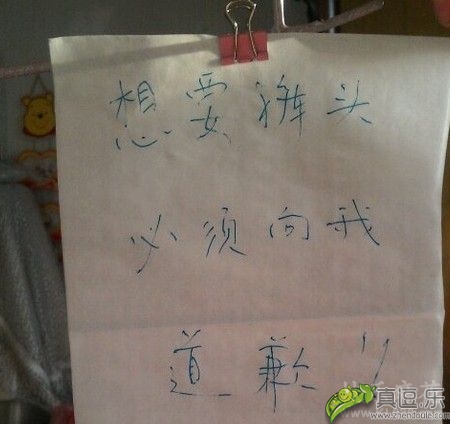 想要裤头
必须向我
道歉!!
真逗乐
www.zhendoule.com